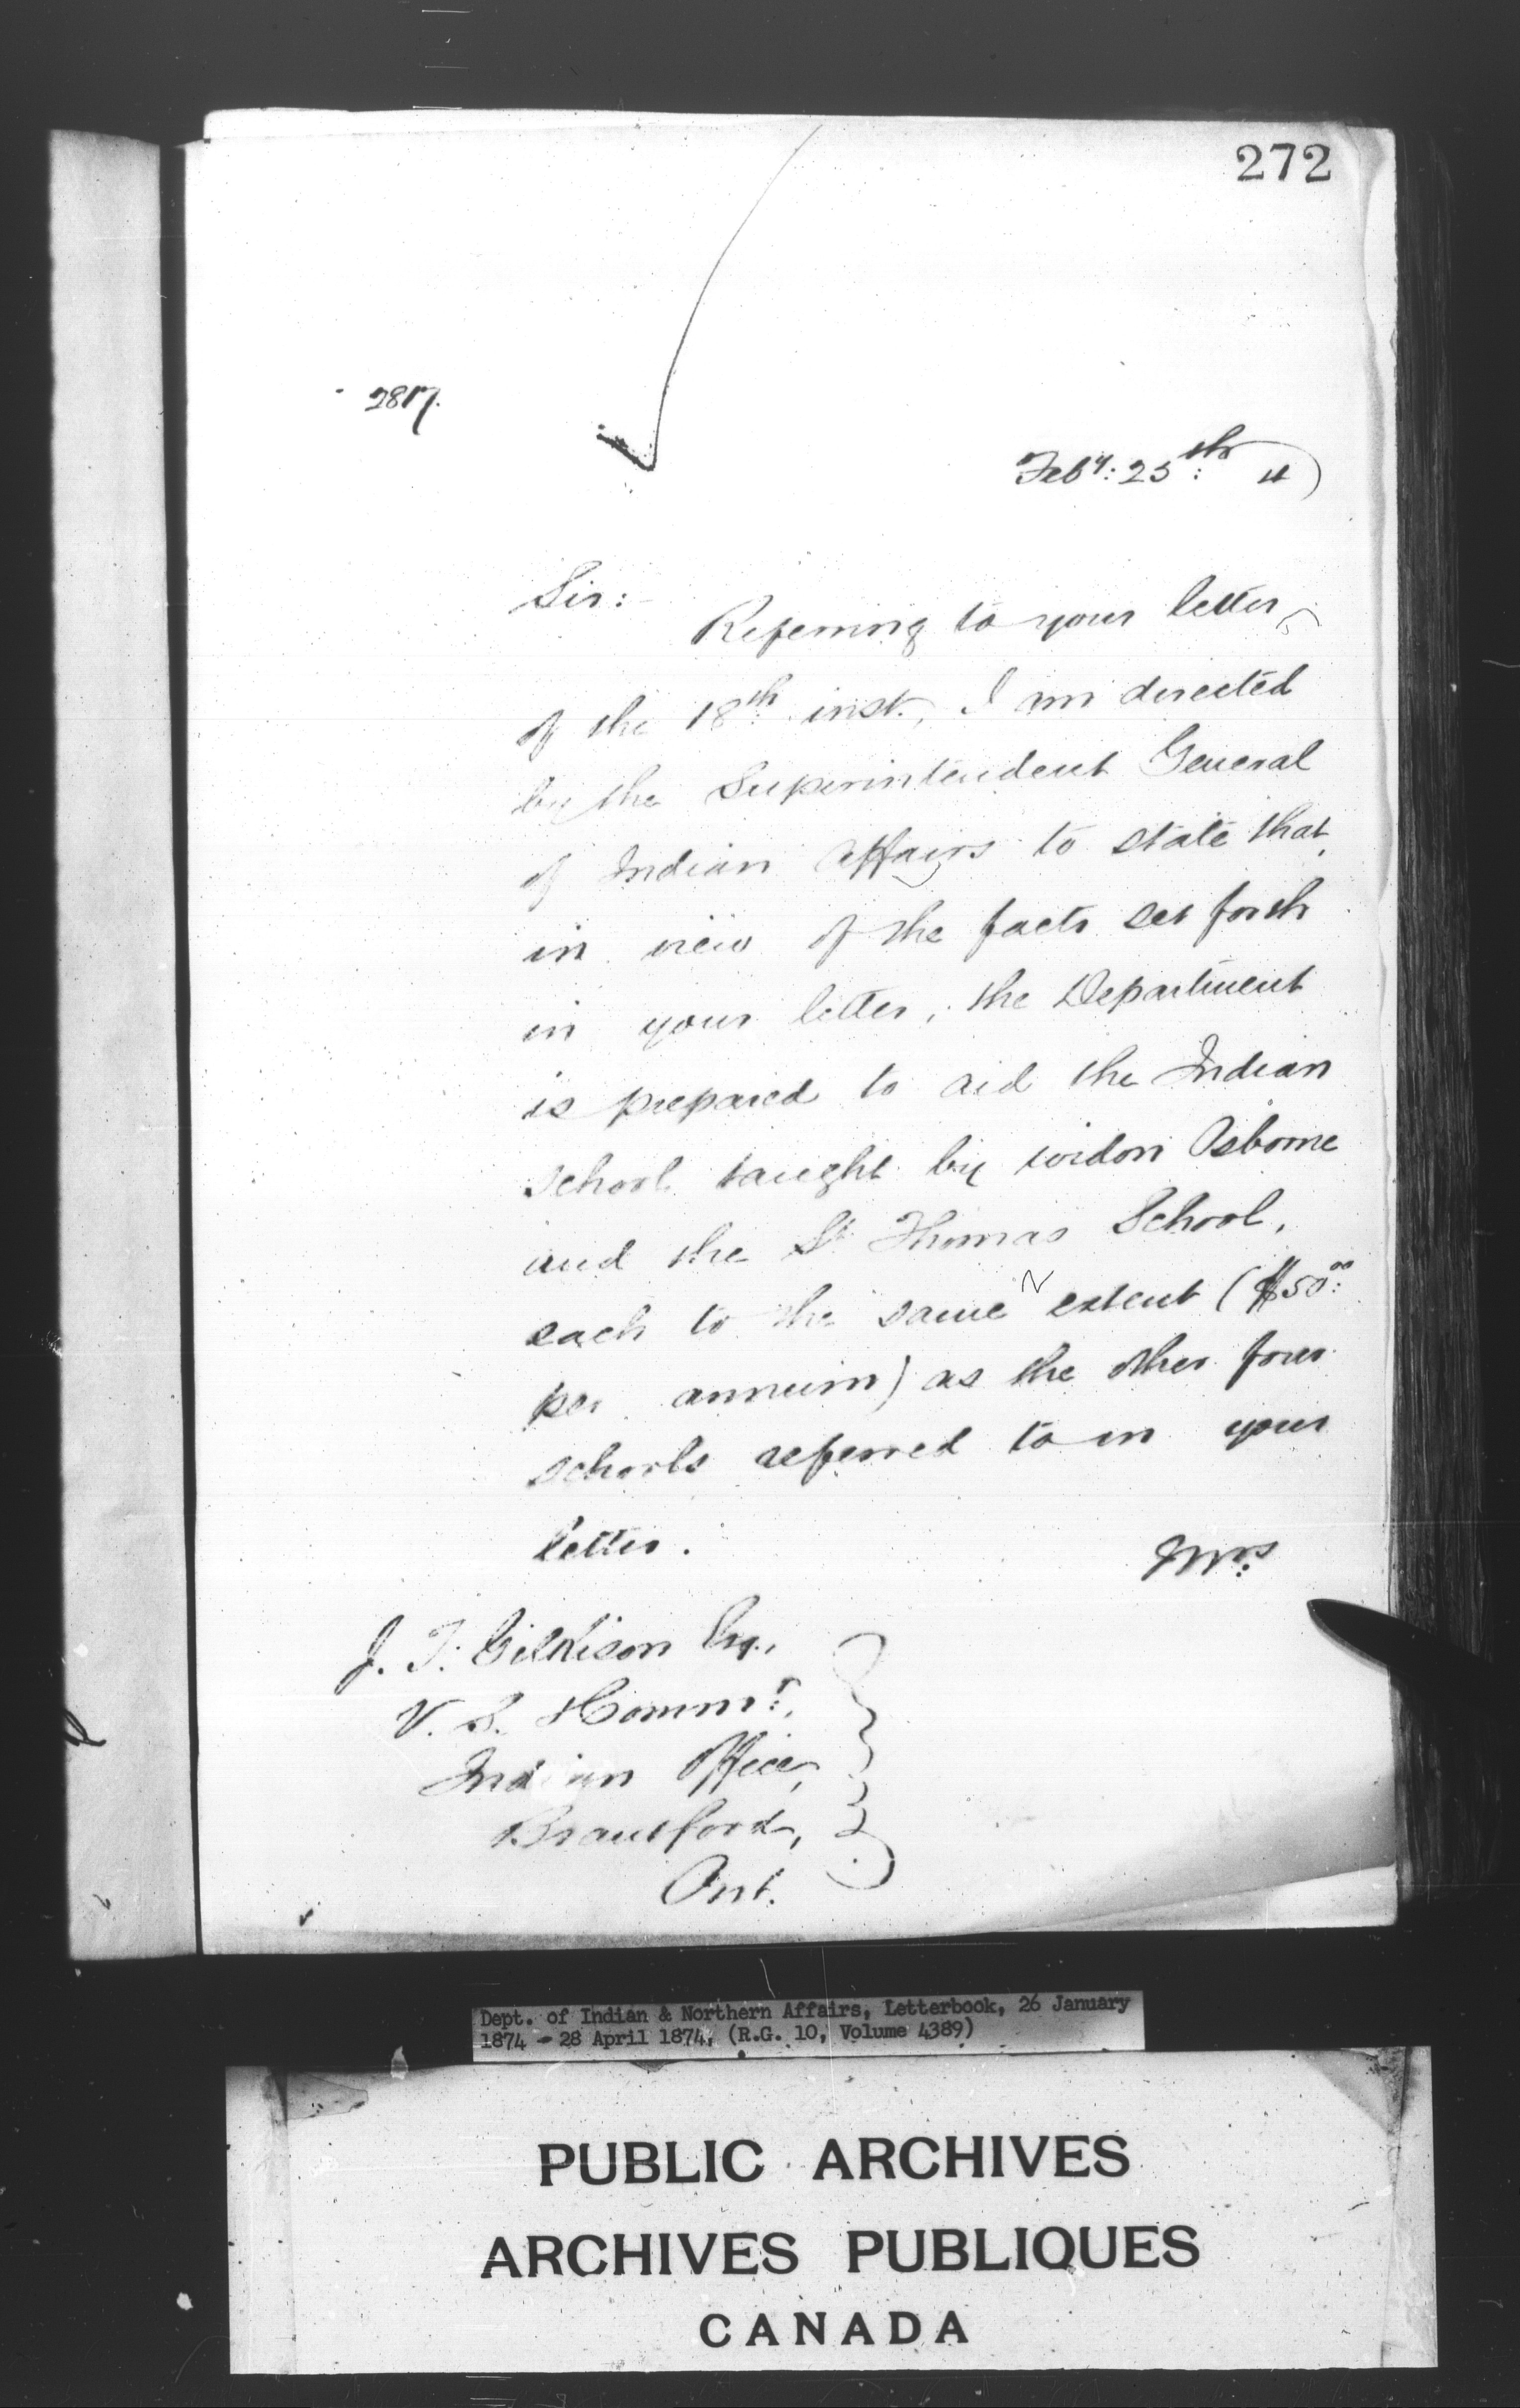 272
2817.
Feby: 25th: 4)
Sir:-
Referring to your letter
of the 18th inst., I am directed
by the Superintendent General
of Indian Affairs to state that
in view of the facts set forth
in your letter, the Department
is prepared to aid the Indian
school taught by widow Osborne
and the St Thomas School,
each to the same extent ($50.00
per annum) as the other four
schools referred to in your
letter.
J. T. Gilkison Esq.,
V. S. & Commr.,
Indian Office,
Brantford,
Ont.
Dept. of Indian & Northern Affairs, Letterbook, 26 January
1874 - 28 April 1874, (R.G. 10, Volume 4389)
PUBLIC ARCHIVES
ARCHIVES PUBLIQUES
CANADA